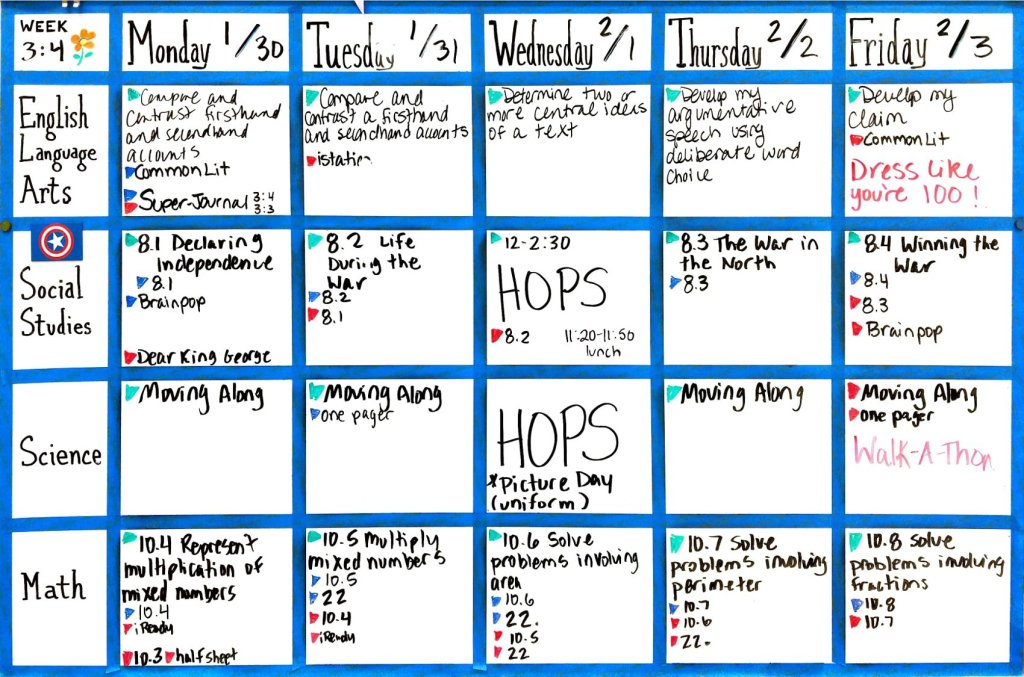 WEEK
3:4
Monday 1/30
Tuesday 1/31
Wednesday 2/1
Thursday 2/2
Friday 2/3
English
Language
Arts
Compare and
contrast firsthand
and secondhand
accounts
CommonLit
Super-Journal 3:4
3:3
Compare and
contrast a firsthand
and secondhand accounts
istation
Determine two or
more central ideas
of a text
Develop my
argumentative
speech using
deliberate word
choice
Develop my
claim
CommonLit
Dress like
you're 100!
Social
Studies
8.1 Declaring
Independence
8.1
Brainpop
Dear King George
8.2 Life
During the
War
8.2
8.1
12-2:30
HOPS
8.2 11:20-11:50
lunch
8.3 The War in
the North
8.3
8.4 Winning the
War
8.4
8.3
Brainpop
Science
Moving Along
Moving Along
one pager
HOPS
*Picture Day
(uniform)
Moving Along
Moving Along
one pager
Walk-A-Thon
Math
10.4 Represent
multiplication of
mixed numbers
10.4
iReady
10.3 half sheet
10.5 Multiply
mixed numbers
10.5
22
10.4
iReady
10.6 Solve
problems involving
area
10.6
22.
10.5
22
10.7 Solve
problems involving
perimeter
10.7
10.6
22.
10.8 Solve
problems involving
fractions
10.8
10.7